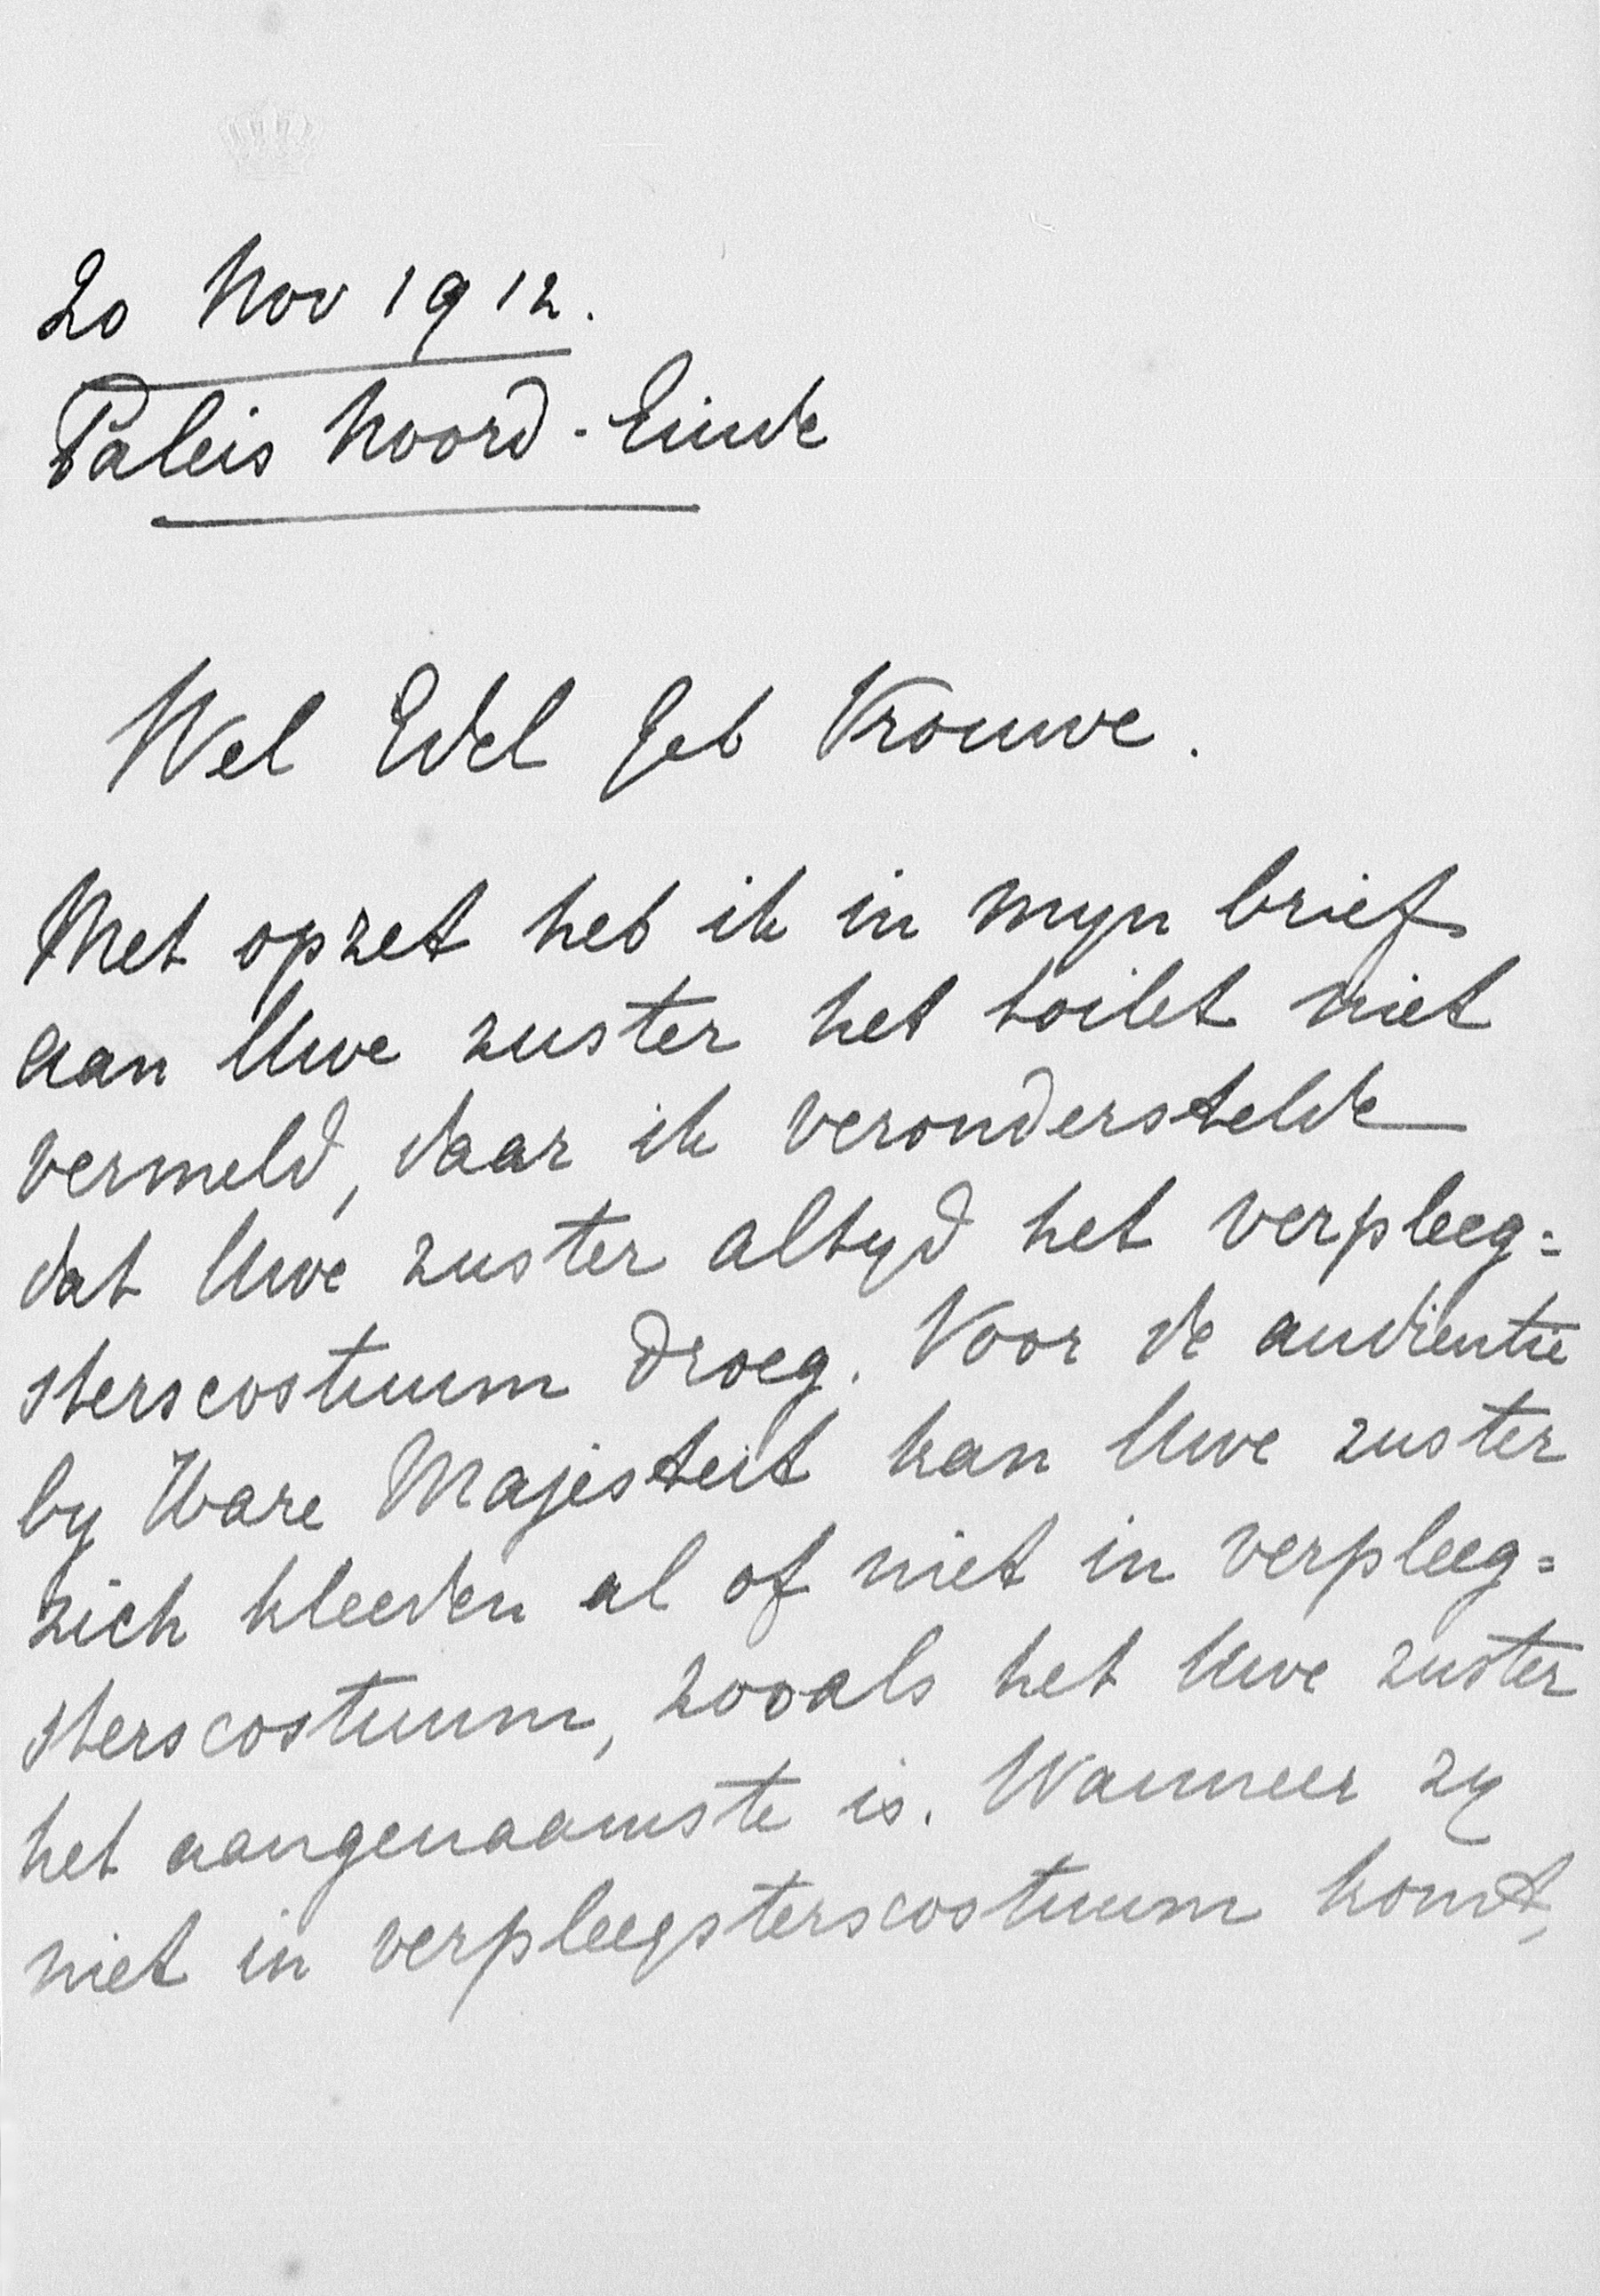 20 Nov 1912.
Paleis Noord-Einde
Wel Edel Geb Vrouwe.
Met opzet heb ik in myn brief
aan Uwe zuster het toilet niet
vermeld, daar ik veronderstelde
dat Uwe zuster altyd het verpleeg=
sterscostuum droeg. Voor de audientie
by Hare Majesteit kan Uwe zuster
zich kleeden al of niet in verpleeg=
sterscostuum, zooals het Uwe zuster
het aangenaamste is. Wanneer zy
niet in verpleegsterscostuum komt,